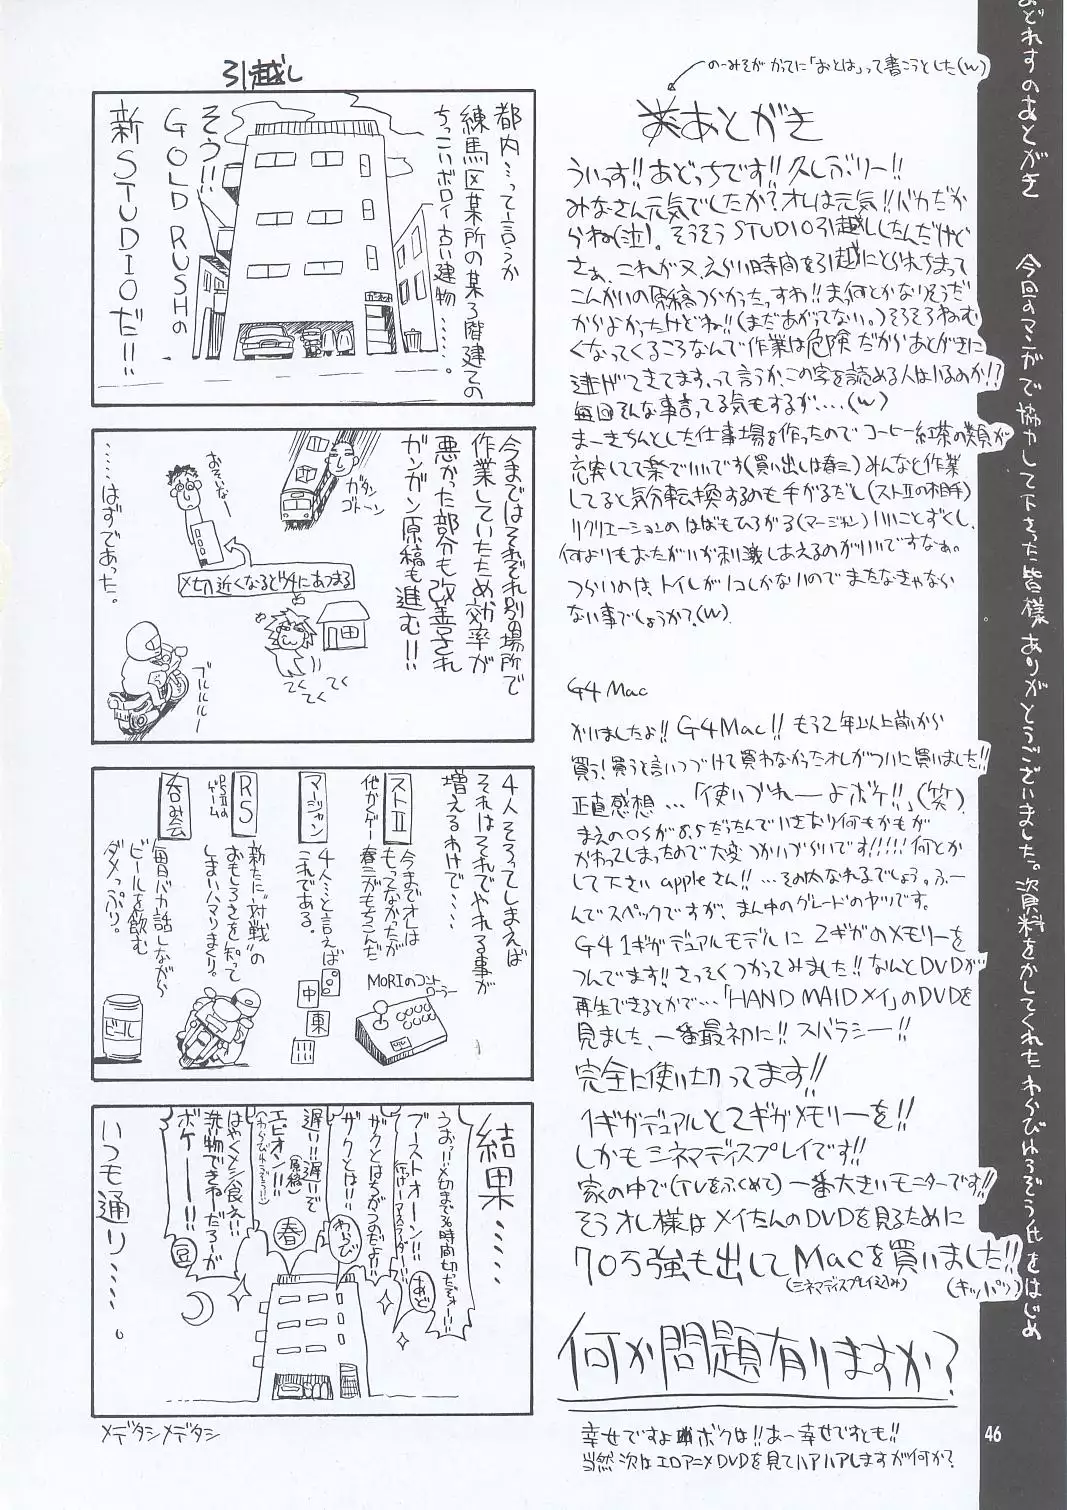 おどれすのあとがき　今回のマンガで協力して下さった皆様ありがとうございました。資料をかしてくれたわらびもちぞう氏をはじめ
のーみそがかってに「おとは」って書こうとした(w)
あとがき
ういっす!!あどっちです!!久しぶりー!!
みなさん元気でしたか?オレは元気!!バカだか
らね(泣)。そうそうSTUDIO引越ししたんだけど
さぁ、これが又、えらい時間を引越にとられちまって
こんがいの原稿つらかったっすわ!!まぁ何とかなりそうだ
からよかったけどね!!(まだあがってない。)そろそろねむ
くなってくるころなんで作業は危険だからあとがきに
逃げてきてます。って言うか、この字を読める人はいるのか!?
毎回そんな事言ってる気もするが....(w)
まーきちんとした仕事場を作ったのでコーヒー紅茶の類が
充実してて楽でいいです(買い出しは春三)みんなと作業
してると気分転換するのも手がるだし(ストⅡの相手)
リクリエーションのはばもひろがる(マージャン)いいことずくし、
何よりもおたがいが刺激しあえるのがいいですなぁ。
つらいのは、トイレが1コしかないのでまたなきゃなら
ない事でしょうか?(w)
G4 Mac
かいましたよ!!G4Mac!!もう2年以上前から
買う!買うと言いつづけて買わなかったオレがついに買いました!!
正直感想...「使いづれーよボケ!!」(笑)
まえのOSが8.5だったんでいきなり何もかもが
かわってしまったので大変つかいづらいです!!!!!何とか
して下さいappleさん!!...その内なれるでしょう。ふー
んでスペックですが、まん中のグレードのヤツです。
G4 1ギガデュアルモデルに2ギガのメモリーを
つんでます!!さっそくつかってみました!!なんとDVDが
再生できるとかで...「HAND MAIDメイ」のDVDを
見ました、一番最初に!!スバラシー!!
完全に使い切ってます!!
1ギガデュアルと2ギガメモリーを!!
しかもシネマディスプレイです!!
家の中で(TVをふくめて)一番大きいモニターです!!
そうオレ様はメイたんのDVDを見るために
70万強も出してMacを買いました!!
(シネマディスプレイ込み)
(キッパリ)
何か問題有りますか?
幸せですよボクは!!あー幸せですとも!!
当然次はエロアニメDVDを見てハアハアしますが何か?
46
引越し
都内...って言うか
練馬区某所の某3階建ての
ちっこいボロイ古い建物......。
そう!!
GOLD RUSHの
新STUDIOだ!!
今まではそれぞれ別の場所で
作業していたため効率が
悪かった部分も改善され
ガンガン原稿も進む!!
ガタン
ゴトーン
おそいなー
〆切近くなるとココにあつまる
てくてくてく
ブルルルルー
......はずであった。
4人そろってしまえば
それはそれでやれる事が
増えるわけで....
ストⅡ
他かくゲー
今までオレは
もってなかったが
春三がもちこんだ
MORIのコントローラー
マージャン
4人...と言えば
これである。
中
東
RS
PSⅡの
ゲーム
新たに"対戦"の
おもしろさを知って
しまいハマりまくり。
呑み会
毎日バカ話しながら
ビールを飲む
ダメっぷり。
ビール
結果......
うおっ!!〆切まで36時間切ったぞォー!!
あど
ブーストオーン!!
ザクとはちがうのだよ!!
ザクとは!!
わらび
遅い!!遅いぞ
エピオン!!
(原稿)
春
はやくメシ食え!!
洗い物できねーだろーが
ボケー!!
豆
いつも通り.....。
メデタシメデタシ